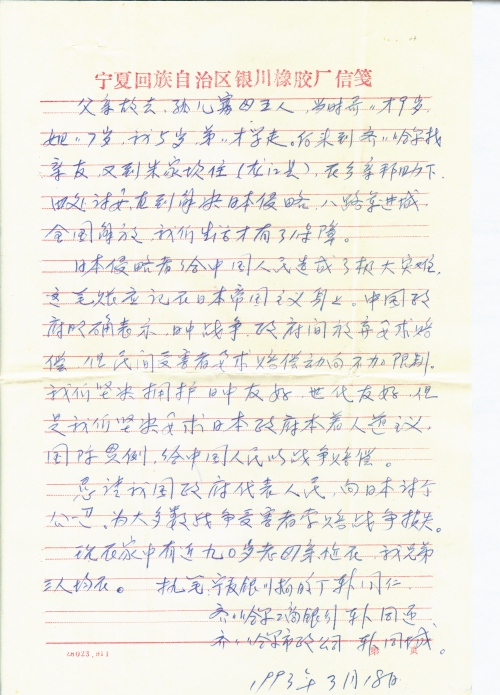 宁夏回族自治区银川橡胶厂信笺
父亲故去，孤儿寡母五人，当时哥〃才9岁，
姐〃7岁，我5岁，弟〃才学走。后来到齐〃哈尔找
亲友，又到朱家坎住（龙江县），在乡亲帮助下，
四处讨要，直到解决日本侵略，八路军进城，
全国解放，我们生活才有了保障。
日本侵略者给中国人民造成了极大灾难，
这笔账应记在日本帝国主义身上。中国政
府明确表示，日中战争，政府间放弃要求赔
偿，但民间受害者要求赔偿动向不加限制。
我们坚决拥护日中友好，世代友好，但
是我们坚决要求日本政府本着人道主义，
国际惯例，给中国人民以战争赔偿。
恳请我国政府代表人民，向日本讨个
公道，为大多数战争受害者索赔战争损失。
现在家中有近九〇岁老母亲健在，我兄弟
三人均在。 执笔：宁夏银川橡胶厂 韩同仁
齐〃哈尔工商银行 韩同
齐〃哈尔市政公司 韩同城。
(8023.21)
第 页
1993年3月18日